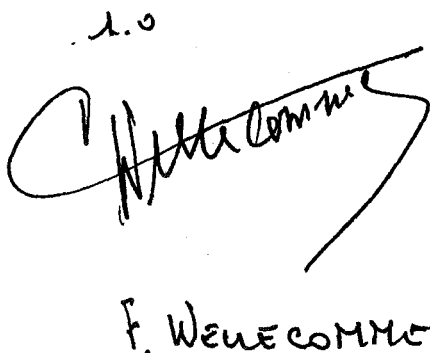 1.0
Wellecomme
F. WELLECOMME